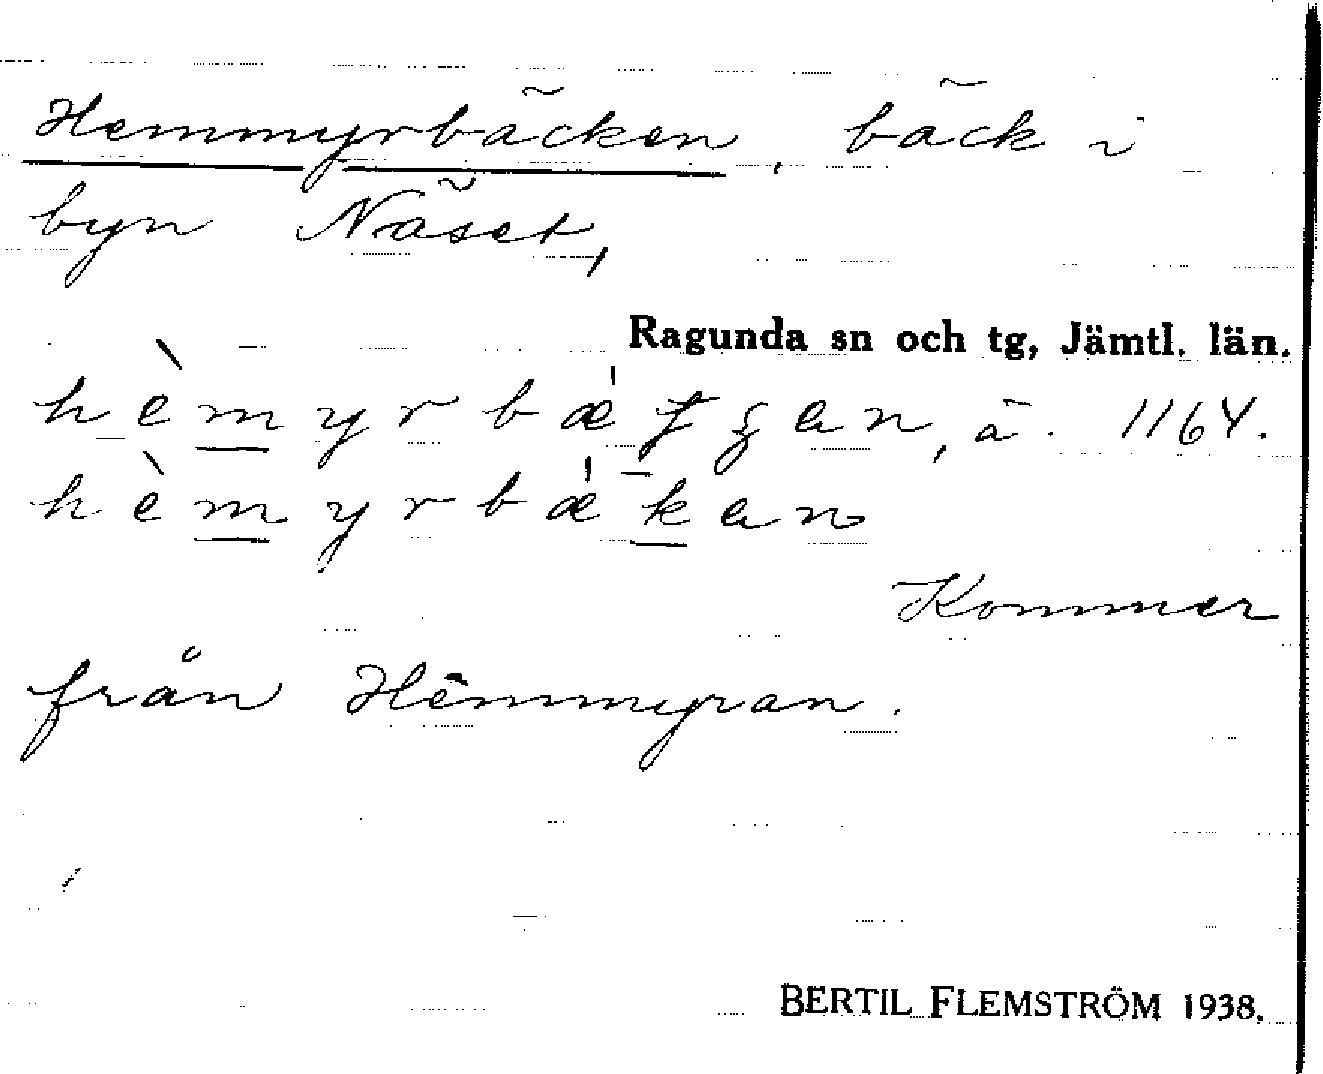 Hemmyrbäcken, bäck i
byn Näset,
Ragunda sn och tg, Jämtl. län.
hèmyrbæ̍ , ä. 1164.
hèmyrbæ̍kan
Kommer
från Hemmyran.
BERTIL FLEMSTRÖM 1938.